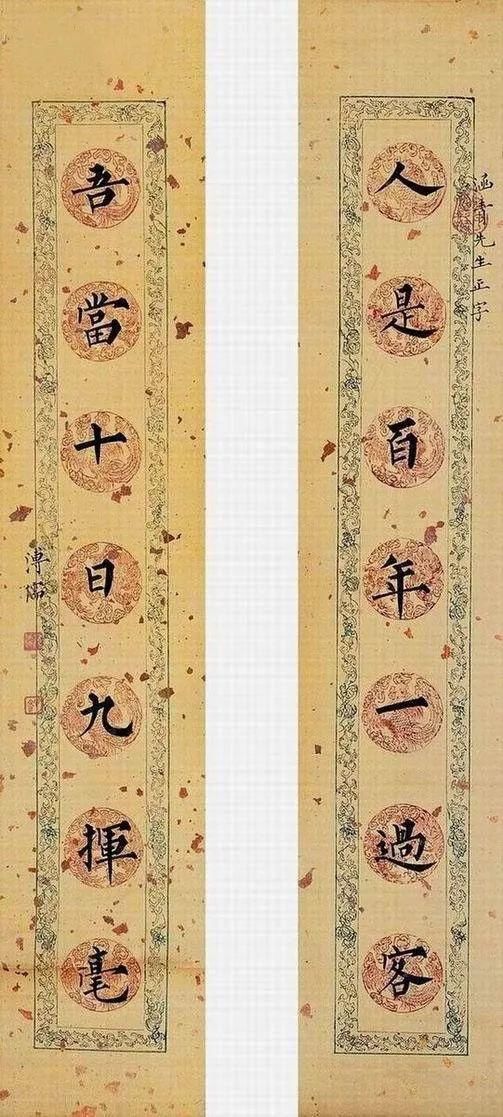 涵青先生正字
人是百年一過客
吾當十日九揮毫
溥儒